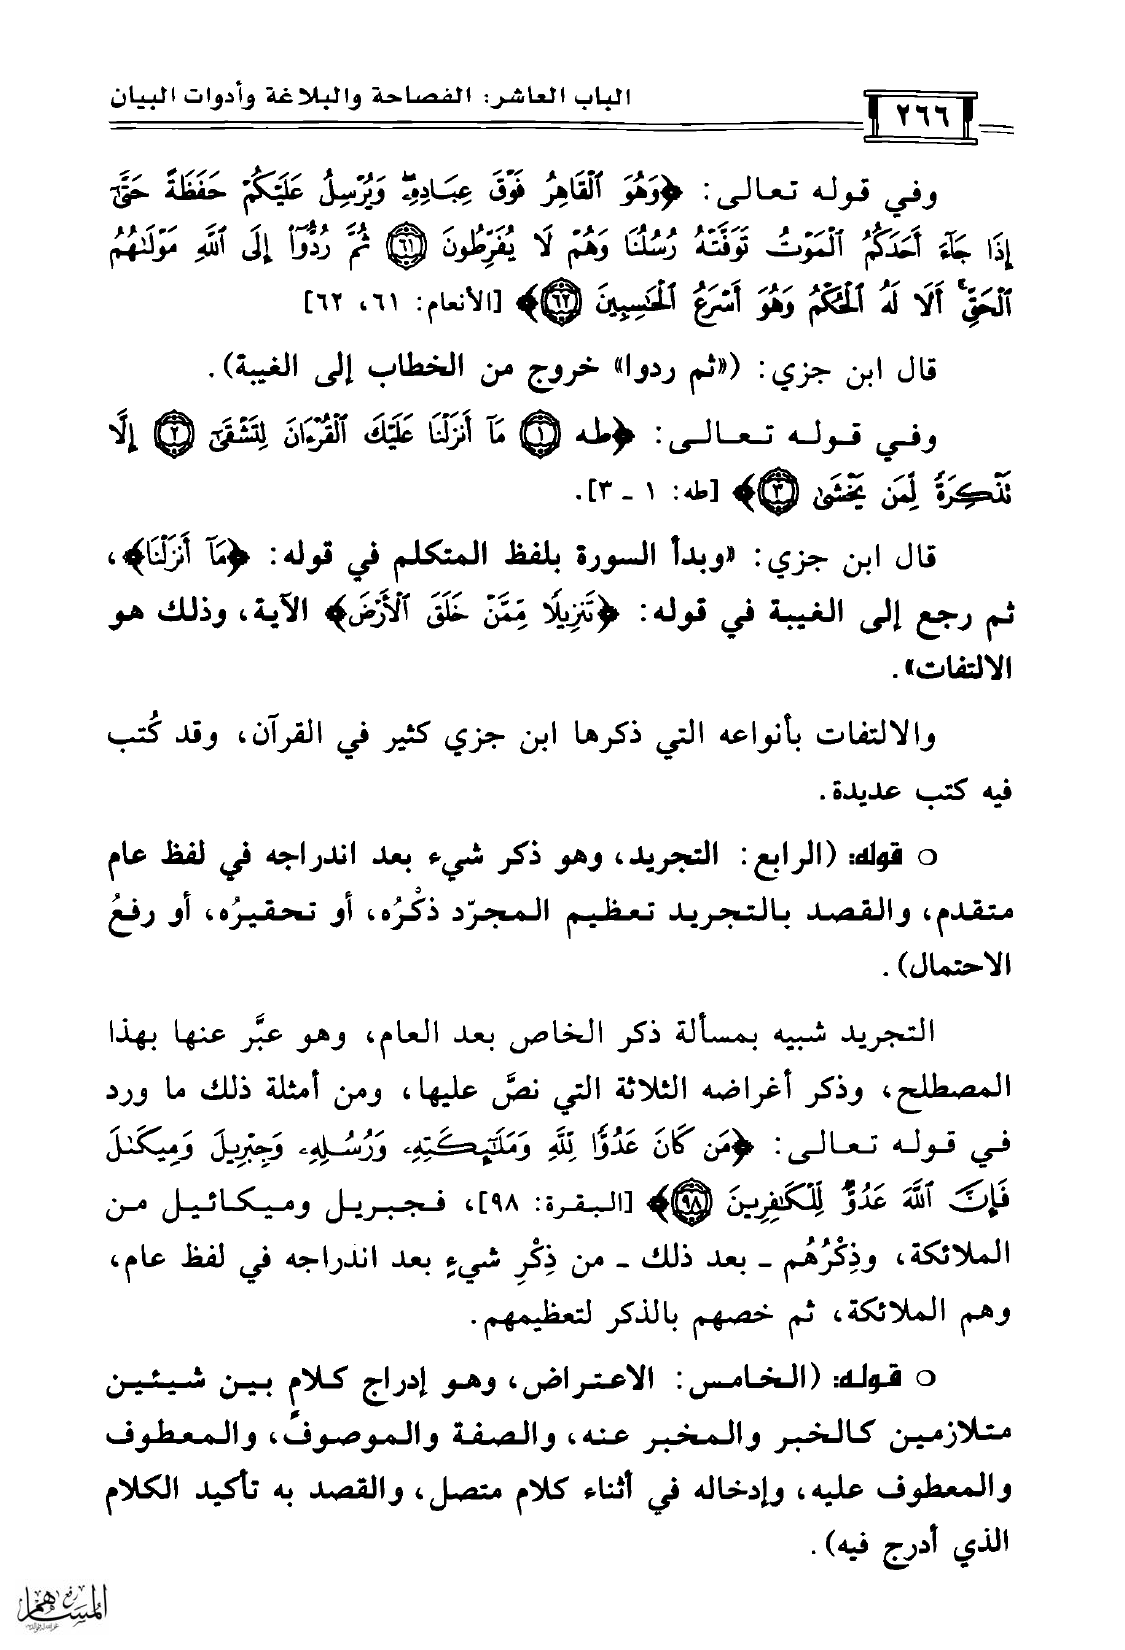 الباب العاشر: الفصاحة والبلاغة وأدوات البيان
٢٦٦
وفي قوله تعالى: ﴿وَهُوَ ٱلْقَاهِرُ فَوْقَ عِبَادِهِۦۖ وَيُرْسِلُ عَلَيْكُمْ حَفَظَةً حَتَّىٰٓ
إِذَا جَآءَ أَحَدَكُمُ ٱلْمَوْتُ تَوَفَّتْهُ رُسُلُنَا وَهُمْ لَا يُفَرِّطُونَ ۝٦١ ثُمَّ رُدُّوٓا۟ إِلَى ٱللَّهِ مَوْلَىٰهُمُ
ٱلْحَقِّۚ أَلَا لَهُ ٱلْحُكْمُ وَهُوَ أَسْرَعُ ٱلْحَٰسِبِينَ ۝٦٢﴾ [الأنعام: ٦١، ٦٢]
قال ابن جزي: («ثم ردوا» خروج من الخطاب إلى الغيبة).
وفي قوله تعالى: ﴿طه ۝١ مَآ أَنزَلْنَا عَلَيْكَ ٱلْقُرْءَانَ لِتَشْقَىٰٓ ۝٢ إِلَّا
تَذْكِرَةً لِّمَن يَخْشَىٰ ۝٣﴾ [طه: ١ ـ ٣].
قال ابن جزي: «وبدأ السورة بلفظ المتكلم في قوله: ﴿مَآ أَنزَلْنَا﴾،
ثم رجع إلى الغيبة في قوله: ﴿تَنزِيلًا مِّمَّنْ خَلَقَ ٱلْأَرْضَ﴾ الآية، وذلك هو
الالتفات».
والالتفات بأنواعه التي ذكرها ابن جزي كثير في القرآن، وقد كُتب
فيه كتب عديدة.
○ قوله: (الرابع: التجريد، وهو ذكر شيء بعد اندراجه في لفظ عام
متقدم، والقصد بالتجريد تعظيم المجرّد ذكْرُه، أو تحقيرُه، أو رفعُ
الاحتمال).
التجريد شبيه بمسألة ذكر الخاص بعد العام، وهو عبَّر عنها بهذا
المصطلح، وذكر أغراضه الثلاثة التي نصَّ عليها، ومن أمثلة ذلك ما ورد
في قوله تعالى: ﴿مَن كَانَ عَدُوًّا لِّلَّهِ وَمَلَٰٓئِكَتِهِۦ وَرُسُلِهِۦ وَجِبْرِيلَ وَمِيكَىٰلَ
فَإِنَّ ٱللَّهَ عَدُوٌّ لِّلْكَٰفِرِينَ ۝٩٨﴾ [البقرة: ٩٨]، فجبريل وميكائيل من
الملائكة، وذِكْرُهُم ـ بعد ذلك ـ من ذِكْرِ شيءٍ بعد اندراجه في لفظ عام،
وهم الملائكة، ثم خصهم بالذكر لتعظيمهم.
○ قوله: (الخامس: الاعتراض، وهو إدراج كلامٍ بين شيئين
متلازمين كالخبر والمخبر عنه، والصفة والموصوف، والمعطوف
والمعطوف عليه، وإدخاله في أثناء كلام متصل، والقصد به تأكيد الكلام
الذي أدرج فيه).